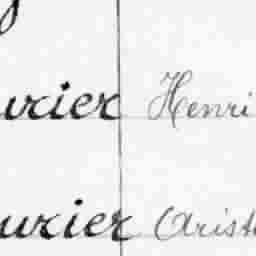 urier Henri
urier Arist